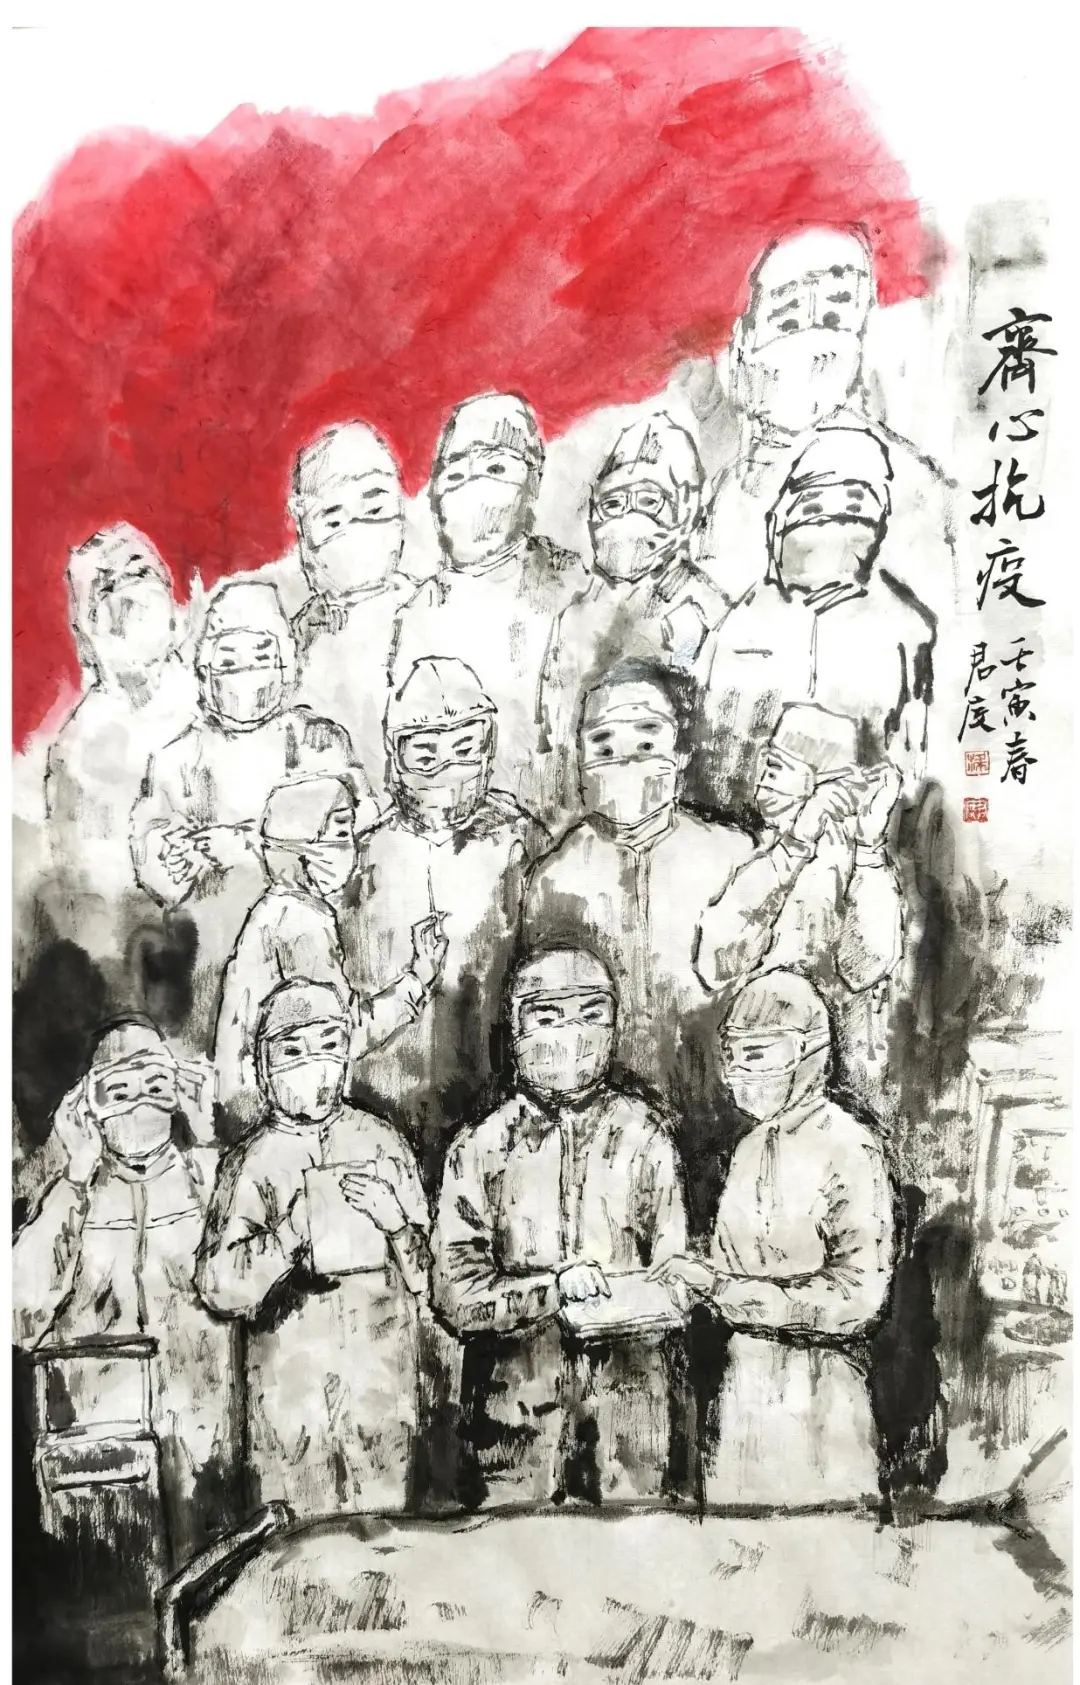 齊心抗疫
壬寅春
君度